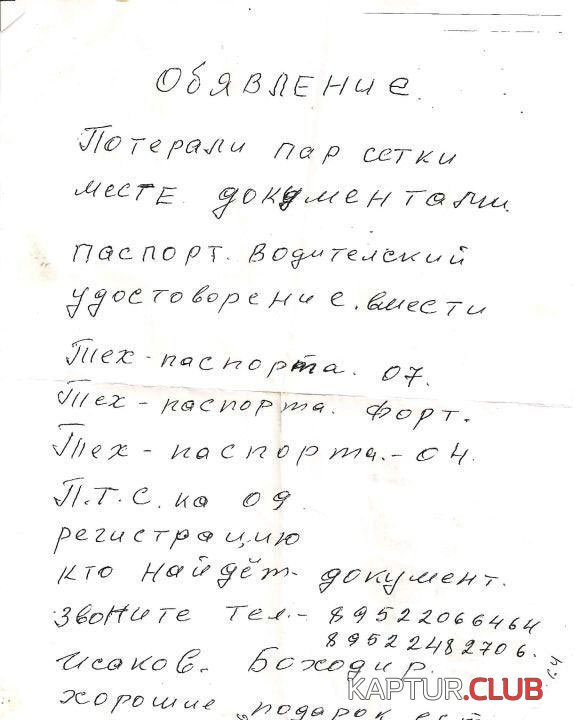 Обявление.
Потерали пар сетки
месте документами.
паспорт. водителский
удостоворение. вмести
Тех-паспорта. 07.
Тех-паспорта. форт.
Тех-паспорта.-04.
П.Т.С. на 09.
регистрацию
кто найдёт документ.
звоните тел.- 89522066464
89522482706.
Исаков. Боходир.
хорошие подарок
KAPTUR.CLUB